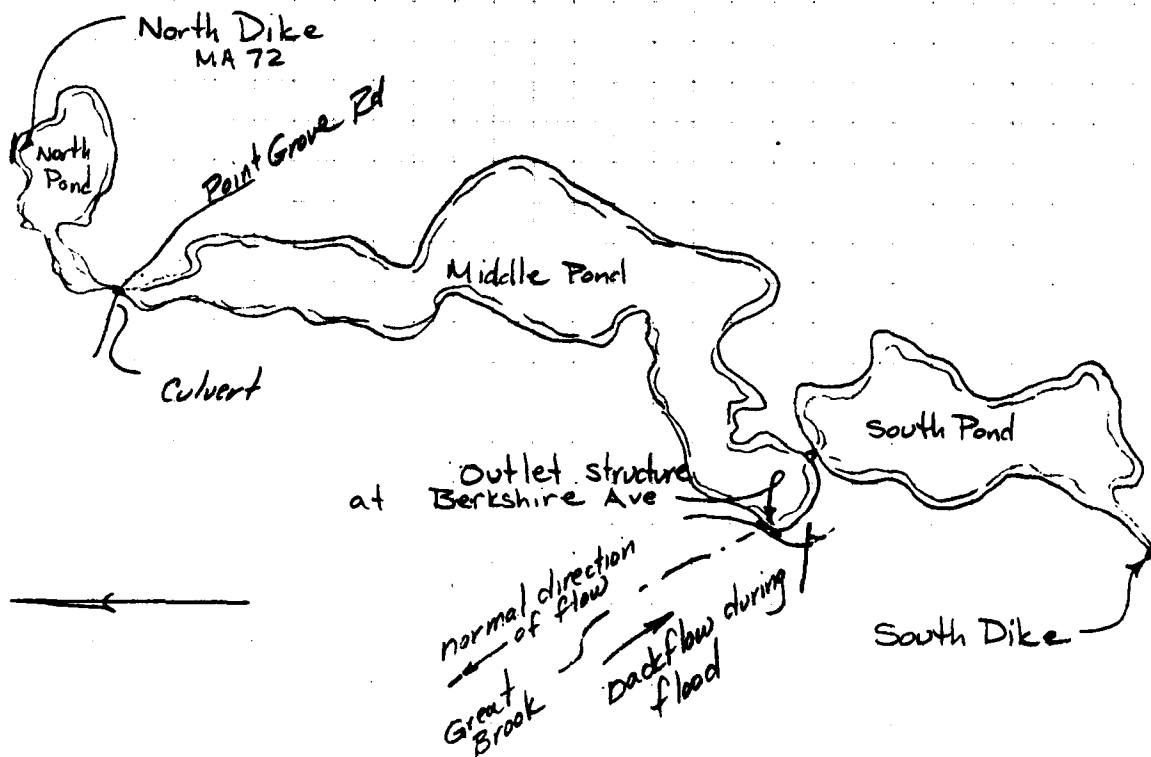 North Dike
MA 72
North
Pond
Point Grove Rd
Middle Pond
Culvert
South Pond
Outlet structure
at Berkshire Ave
normal direction
of flow
Backflow during
flood
Great
Brook
South Dike